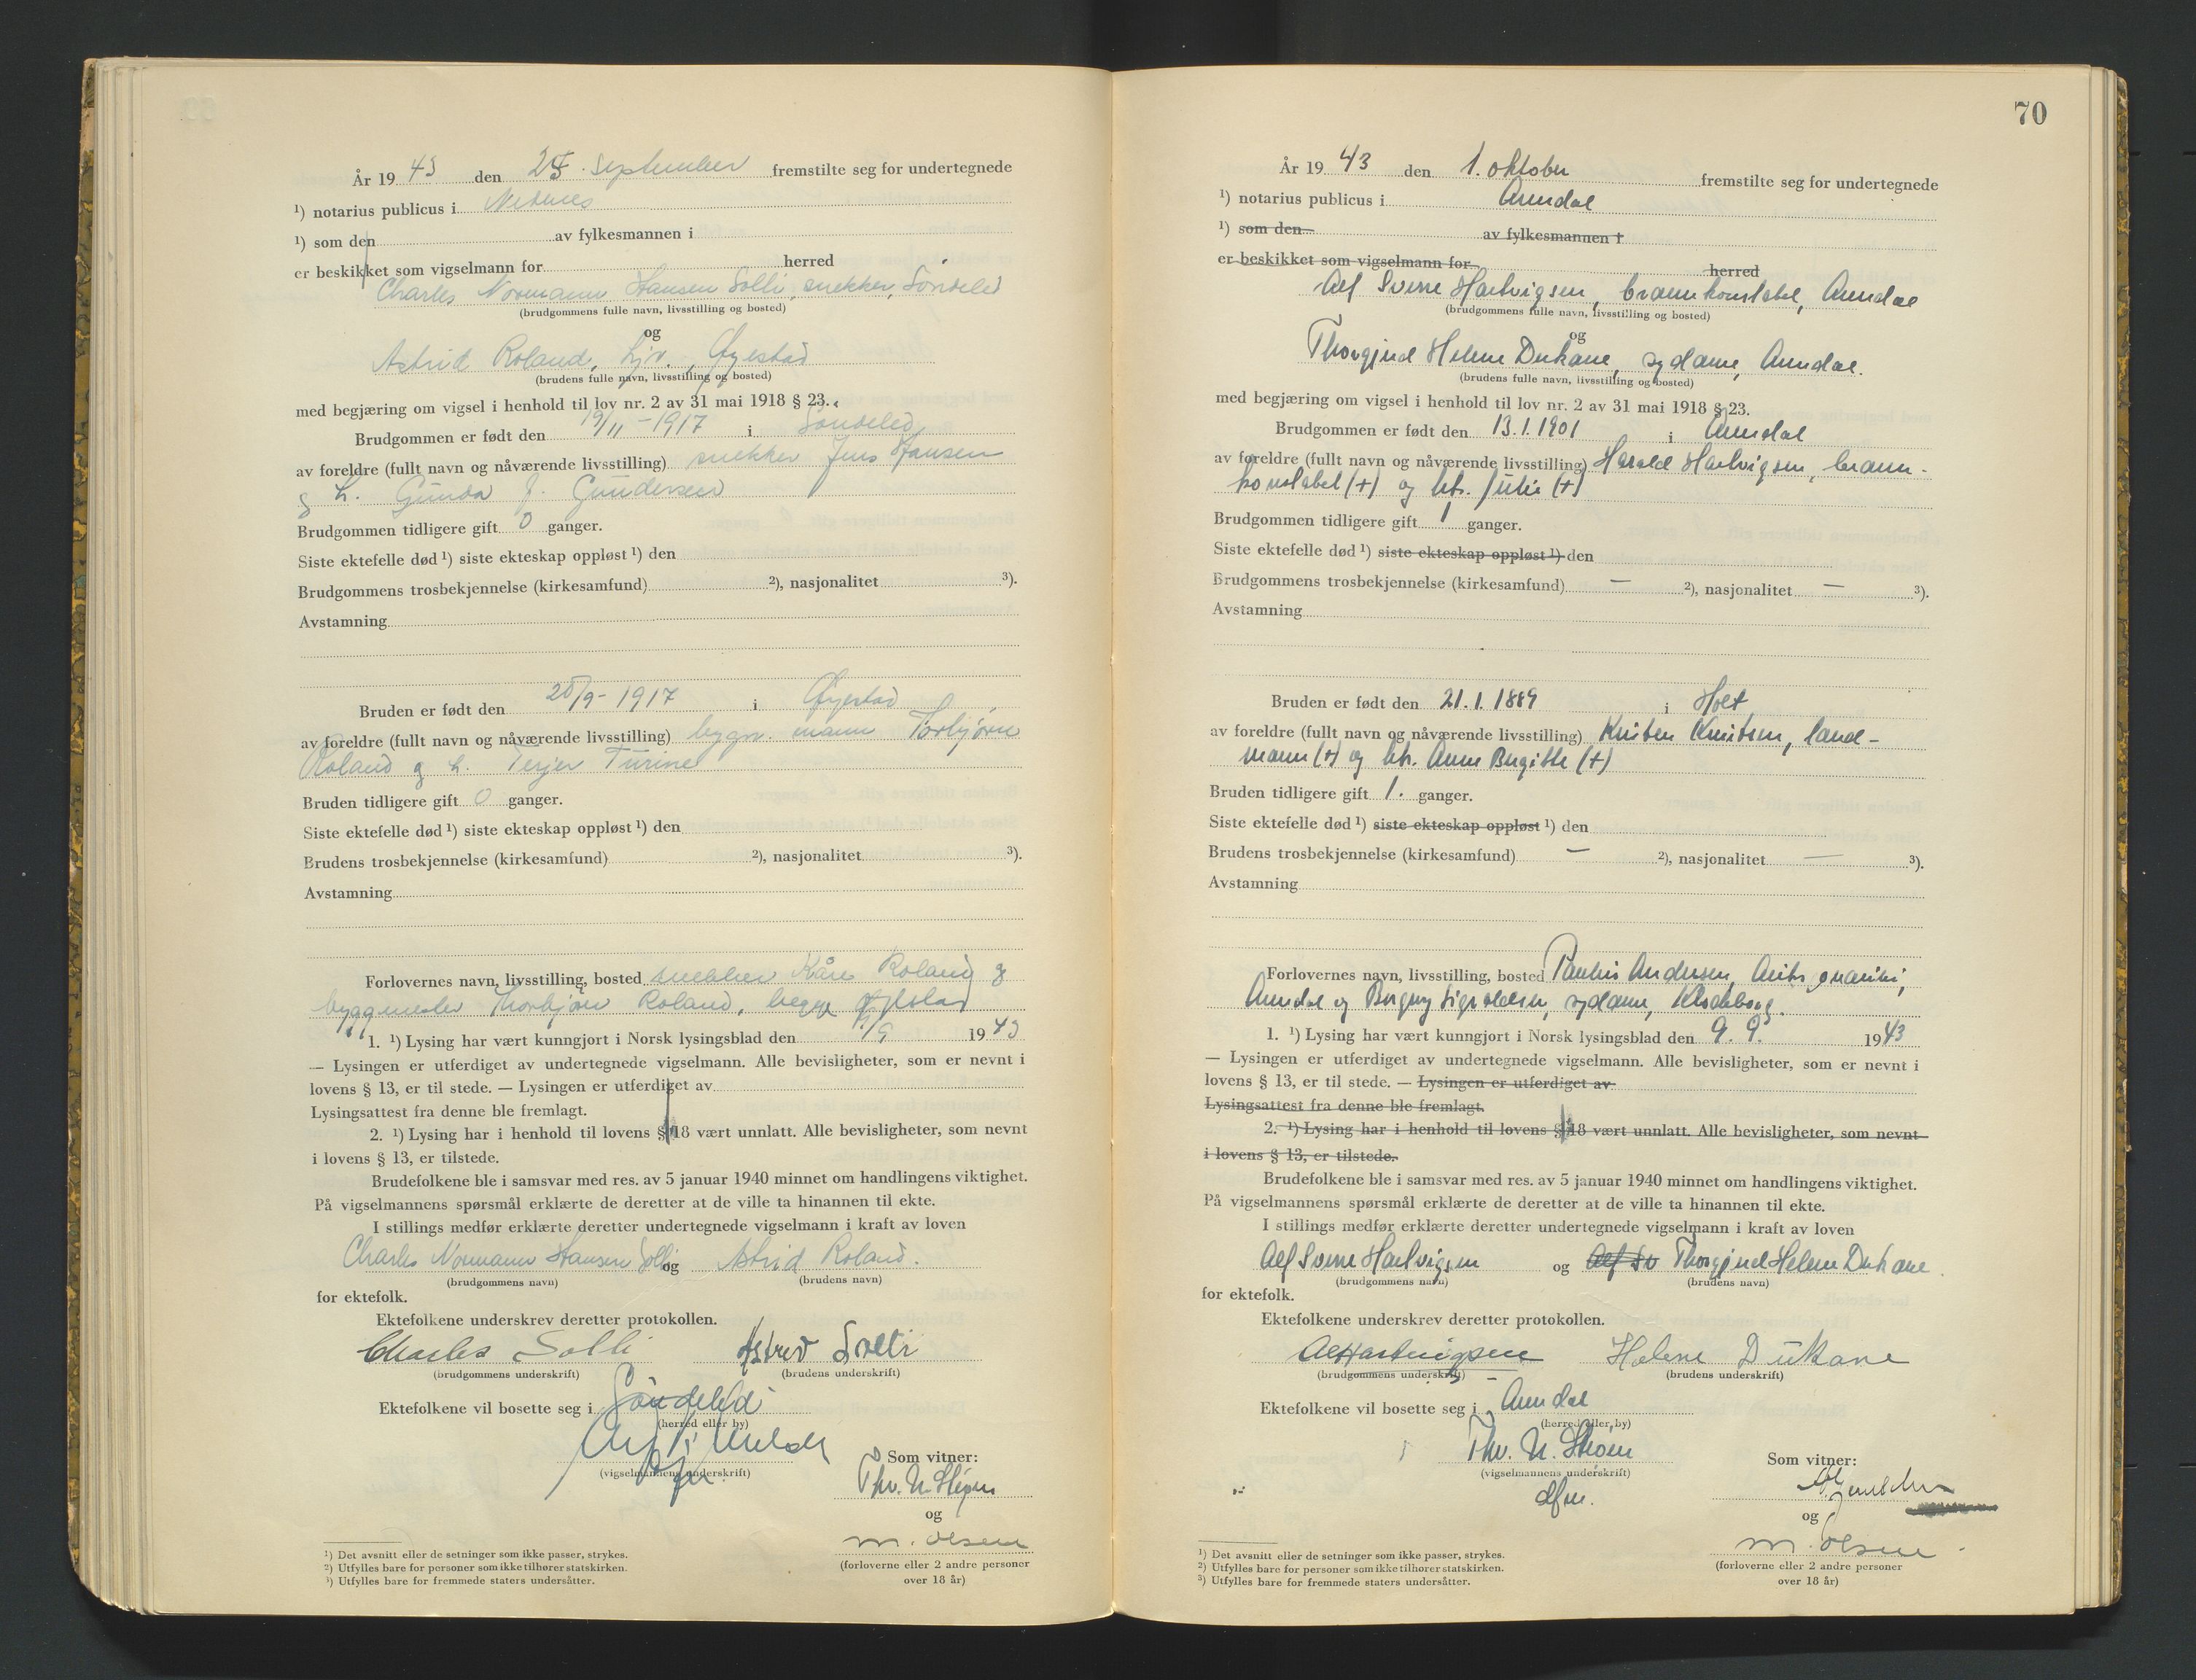 År 19 43 den 25. september fremstilte seg for undertegnede
¹) notarius publicus i Nedenes
¹) som den av fylkesmannen i
er beskikket som vigselmann for herred
Charles Normann Hansen Solli, snekker, Søndeled
(brudgommens fulle navn, livsstilling og bosted)
og
Astrid Roland, hjv., Øyestad
(brudens fulle navn, livsstilling og bosted)
med begjæring om vigsel i henhold til lov nr. 2 av 31 mai 1918 § 23.
Brudgommen er født den 19/11-1917 i Søndeled
av foreldre (fullt navn og nåværende livsstilling) snekker Jens Hansen
g h. Gunda J. Gundersen
Brudgommen tidligere gift 0 ganger.
Siste ektefelle død ¹) siste ekteskap oppløst ¹) den
Brudgommens trosbekjennelse (kirkesamfund) ²), nasjonalitet ³).
Avstamning
Bruden er født den 20/9-1917 i Øyestad
av foreldre (fullt navn og nåværende livsstilling) bygn. mann Torbjørn
Roland g h. Terjer Turine
Bruden tidligere gift 0 ganger.
Siste ektefelle død ¹) siste ekteskap oppløst ¹) den
Brudens trosbekjennelse (kirkesamfund) ²), nasjonalitet ³).
Avstamning
Forlovernes navn, livsstilling, bosted snekker Kåre Roland g
byggmester Thorbjørn Roland, begge Øyestad
1. ¹) Lysing har vært kunngjort i Norsk lysingsblad den /9 19 43
— Lysingen er utferdiget av undertegnede vigselmann. Alle bevisligheter, som er nevnt i
lovens § 13, er til stede. — Lysingen er utferdiget av
Lysingsattest fra denne ble fremlagt.
2. ¹) Lysing har i henhold til lovens § 18 vært unnlatt. Alle bevisligheter, som nevnt
i lovens § 13, er tilstede.
Brudefolkene ble i samsvar med res. av 5 januar 1940 minnet om handlingens viktighet.
På vigselmannens spørsmål erklærte de deretter at de ville ta hinannen til ekte.
I stillings medfør erklærte deretter undertegnede vigselmann i kraft av loven
Charles Normann Hansen Solli og Astrid Roland.
(brudgommens navn) (brudens navn)
for ektefolk.
Ektefolkene underskrev deretter protokollen.
Charles Solli Astrid Solli
(brudgommens underskrift) (brudens underskrift)
Ektefolkene vil bosette seg i Søndeled
(herred eller by)
(vigselmannens underskrift)
Som vitner:
Thv. N. Strøm
og
M. Olsen
(forloverne eller 2 andre personer
over 18 år)
¹) Det avsnitt eller de setninger som ikke passer, strykes.
²) Utfylles bare for personer som ikke tilhører statskirken.
³) Utfylles bare for fremmede staters undersåtter.
70
År 19 43 den 1. oktober fremstilte seg for undertegnede
¹) notarius publicus i Arendal
¹) som den av fylkesmannen i
er beskikket som vigselmann for herred
Alf Sverre Hartvigsen, brannkonstabel, Arendal
(brudgommens fulle navn, livsstilling og bosted)
og
Thorgjerd Helene Dukane, sydame, Arendal.
(brudens fulle navn, livsstilling og bosted)
med begjæring om vigsel i henhold til lov nr. 2 av 31 mai 1918 § 23.
Brudgommen er født den 13.1.1901 i Arendal
av foreldre (fullt navn og nåværende livsstilling) Harald Hartvigsen, brann-
konstabel (+) og htr. Julie (+)
Brudgommen tidligere gift 1 ganger.
Siste ektefelle død ¹) siste ekteskap oppløst ¹) den
Brudgommens trosbekjennelse (kirkesamfund) — ²), nasjonalitet — ³).
Avstamning
Bruden er født den 21.1.1889 i Holt
av foreldre (fullt navn og nåværende livsstilling) Knuten Knutsen, land-
mann (+) og htr. Anne Birgitte (+)
Bruden tidligere gift 1. ganger.
Siste ektefelle død ¹) siste ekteskap oppløst ¹) den
Brudens trosbekjennelse (kirkesamfund) — ²), nasjonalitet — ³).
Avstamning
Forlovernes navn, livsstilling, bosted Paulus Andersen,
Arendal og Bergny Sigvaldsen, sydame, Klodeborg.
1. ¹) Lysing har vært kunngjort i Norsk lysingsblad den 9. 9. 19 43
— Lysingen er utferdiget av undertegnede vigselmann. Alle bevisligheter, som er nevnt i
lovens § 13, er til stede. — Lysingen er utferdiget av
Lysingsattest fra denne ble fremlagt.
2. ¹) Lysing har i henhold til lovens § 18 vært unnlatt. Alle bevisligheter, som nevnt
i lovens § 13, er tilstede.
Brudefolkene ble i samsvar med res. av 5 januar 1940 minnet om handlingens viktighet.
På vigselmannens spørsmål erklærte de deretter at de ville ta hinannen til ekte.
I stillings medfør erklærte deretter undertegnede vigselmann i kraft av loven
Alf Sverre Hartvigsen og Alf Sv Thorgjerd Helene Dukane
(brudgommens navn) (brudens navn)
for ektefolk.
Ektefolkene underskrev deretter protokollen.
Alf Hartvigsen Helene Dukane
(brudgommens underskrift) (brudens underskrift)
Ektefolkene vil bosette seg i Arendal
(herred eller by)
Thv. N. Strøm
(vigselmannens underskrift)
dfm.
Som vitner:
og
M. Olsen
(forloverne eller 2 andre personer
over 18 år)
¹) Det avsnitt eller de setninger som ikke passer, strykes.
²) Utfylles bare for personer som ikke tilhører statskirken.
³) Utfylles bare for fremmede staters undersåtter.